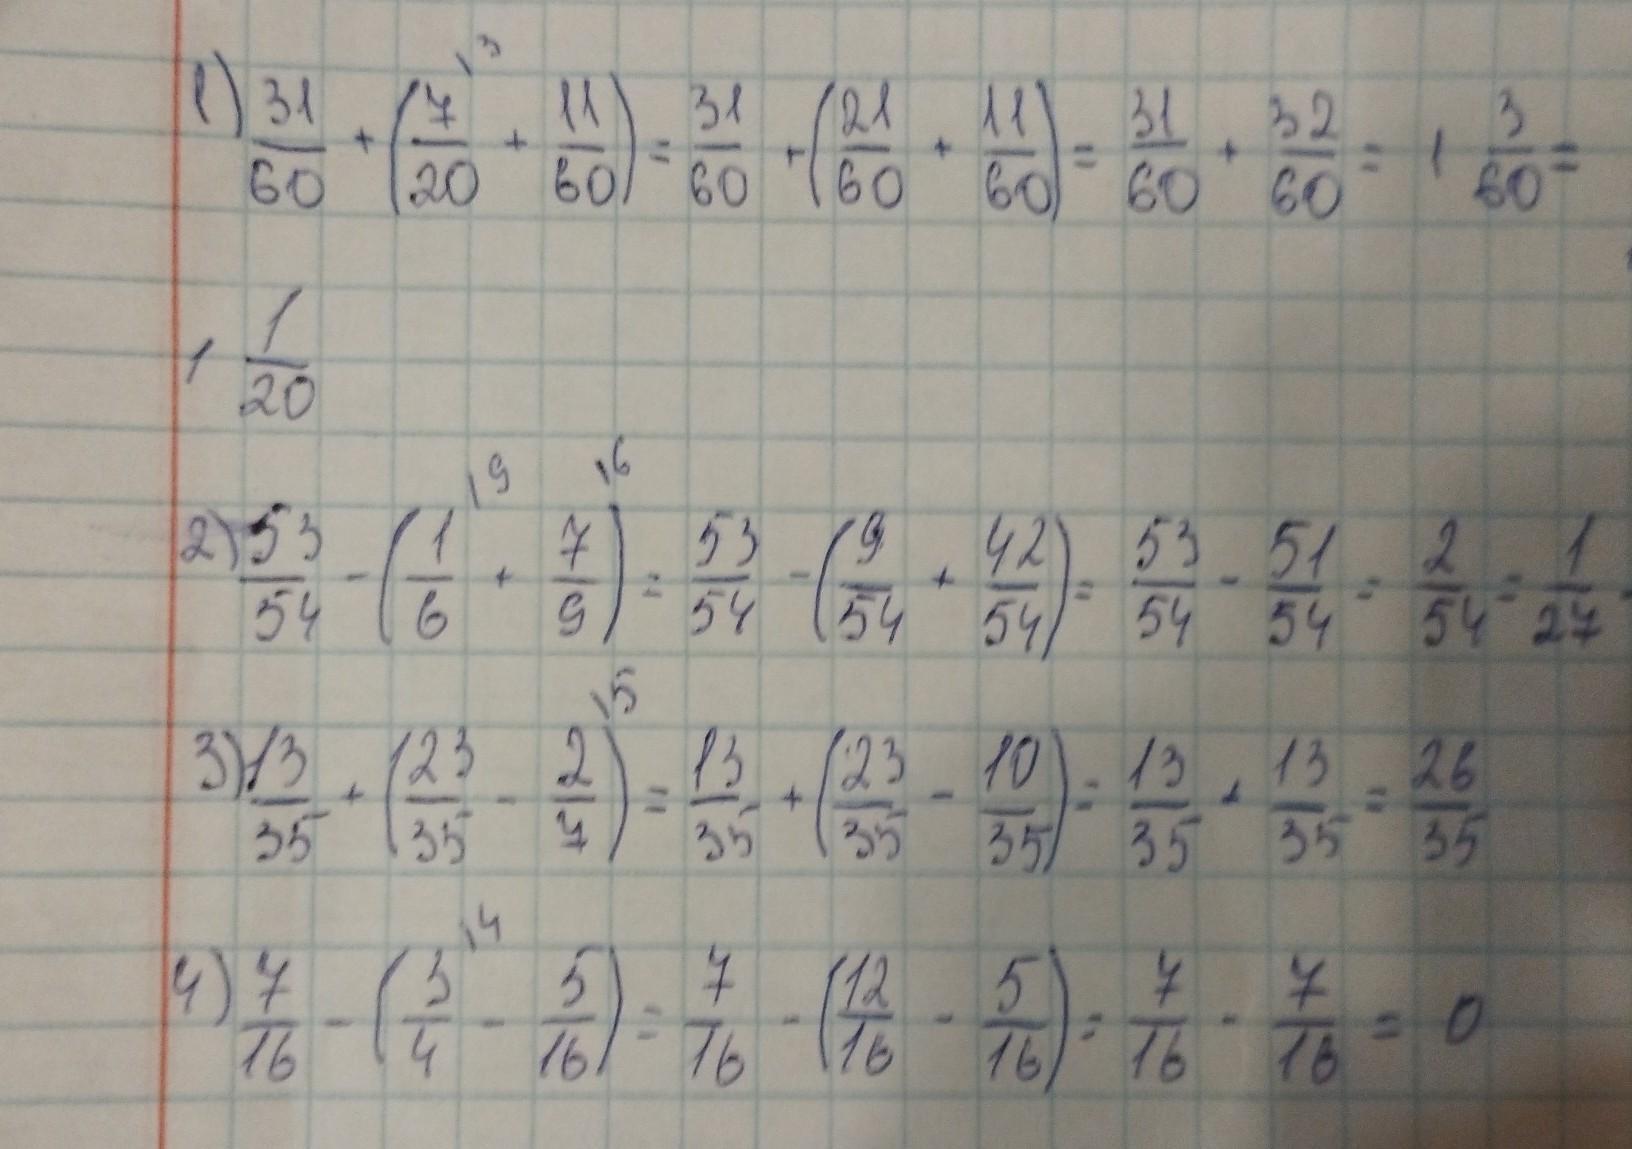 1) 31/60 + (7/20 \3 + 11/60) = 31/60 + (21/60 + 11/60) = 31/60 + 32/60 = 1 3/60 =
1 1/20
2) 53/54 - (1/6 \9 + 7/9 \6) = 53/54 - (9/54 + 42/54) = 53/54 - 51/54 = 2/54 = 1/27
3) 13/35 + (23/35 - 2/7 \5) = 13/35 + (23/35 - 10/35) = 13/35 + 13/35 = 26/35
4) 7/16 - (3/4 \4 - 5/16) = 7/16 - (12/16 - 5/16) = 7/16 - 7/16 = 0